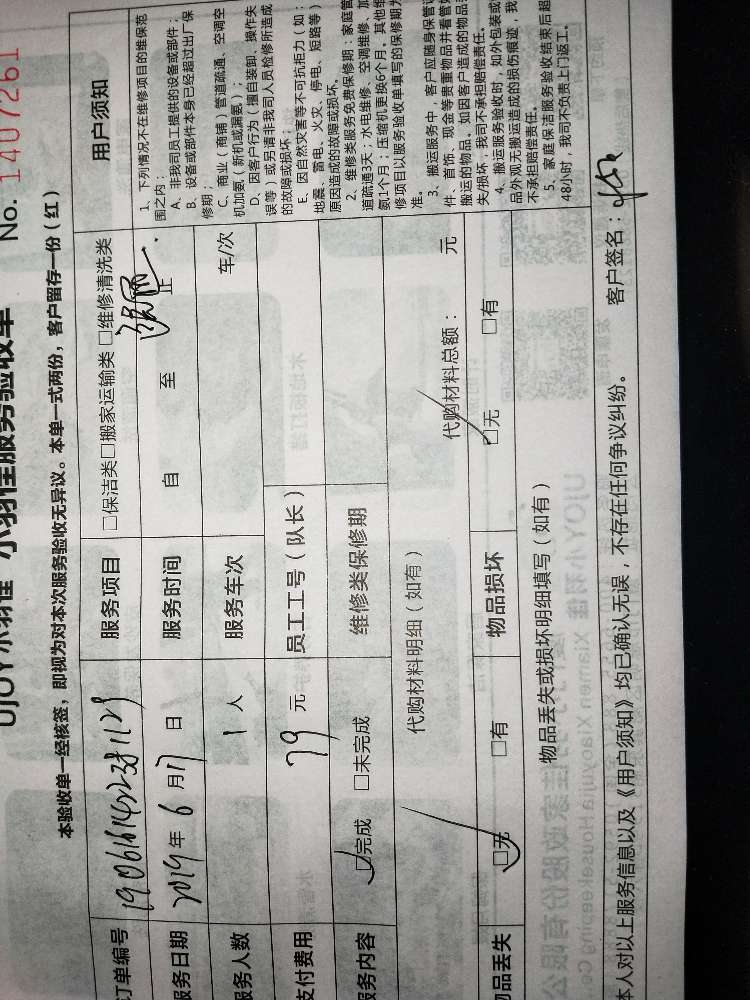 UJOY小羽佳 小羽佳服务验收单
No. 1407261
本验收单一经核签，即视为对本次服务验收无异议。本单一式两份，客户留存一份（红）
订单编号
服务项目 □保洁类□搬家运输类 □维修清洗类
服务日期 2019 年 6 月 17 日
服务时间 自 至 止
服务人数 1 人
服务车次 车/次
支付费用 79 元
员工工号（队长）
服务内容 □完成 □未完成
维修类保修期
代购材料明细（如有） 代购材料总额： 元
物品丢失 □无 □有
物品损坏 □无 □有
物品丢失或损坏明细填写（如有）
用户须知
1、下列情况不在维修项目的维保范
围之内：
A、非我司员工提供的设备或部件；
B、设备或部件本身已经超过出厂保
修期；
C、商业（商铺）管道疏通、空调空
机加氨（新机或漏氨）；
D、因客户行为（擅自装卸、操作失
误等）或另请非我司人员检修所造成
的故障或损坏；
E、因自然灾害等不可抗拒力（如：
地震、雷电、火灾、停电、短路等）
原因造成的故障或损坏。
2、维修类服务免费保修期：家庭管
道疏通3天；水电维修、空调维修、加
氨1个月；压缩机更换6个月。其他维
修项目以服务验收单填写的保修期为
准。
3、搬运服务中，客户应随身保管
件、首饰、现金等贵重物品并看管
搬运的物品。如因客户造成的物品
失/损坏，我司不承担赔偿责任。
4、搬运服务验收时，如外包装或
品外观无搬运造成的损伤痕迹，我
不承担赔偿责任。
5、家庭保洁服务验收结束后超
48小时，我司不负责上门返工。
本人对以上服务信息以及《用户须知》均已确认无误，不存在任何争议纠纷。 客户签名：